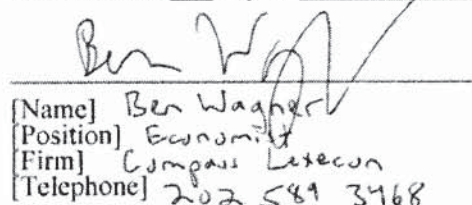 Ben W
[Name] Ben Wagner
[Position] Economist
[Firm] Compass Lexecon
[Telephone] 202 589 3468